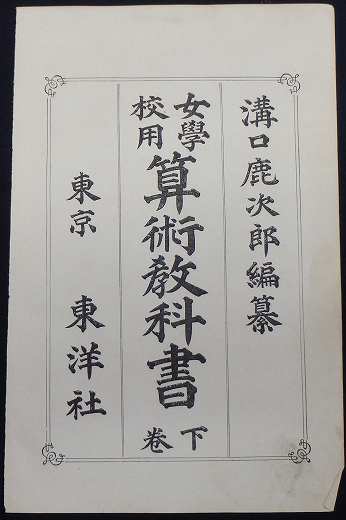 溝口鹿次郎編纂
女學校用
算術教科書
下卷
東京 東洋社